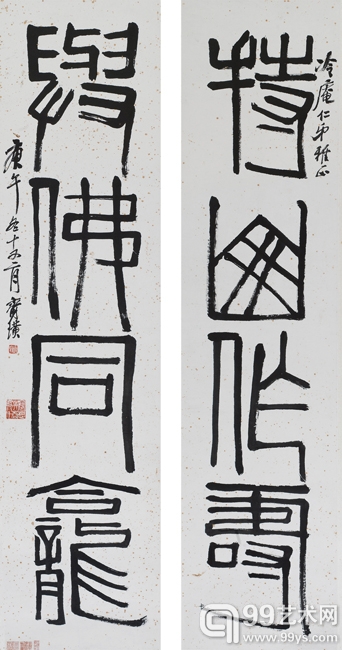 冷庵仁弟雅正
持山作壽
與佛同龕
庚午冬十又二月齊璜
99艺术网
www.99ys.com